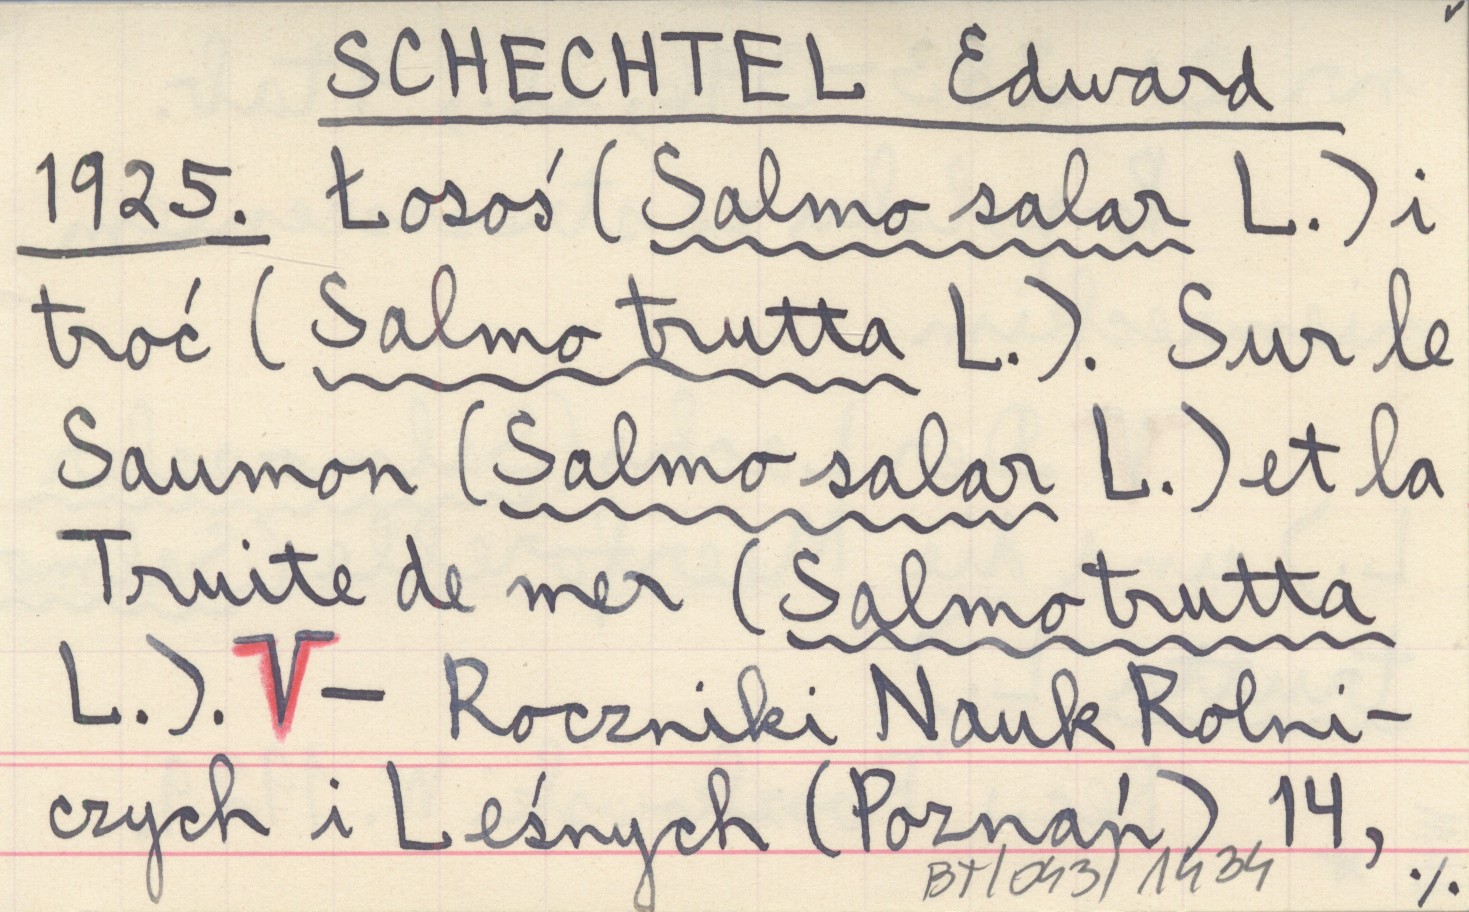 SCHECHTEL Edward
1925. Łosoś (Salmo salar L.) i
troć (Salmo trutta L.). Sur le
Saumon (Salmo salar L.) et la
Truite de mer (Salmo trutta
L.). V — Roczniki Nauk Rolni-
czych i Leśnych (Poznań) 14,
BT/043/1434 ./.